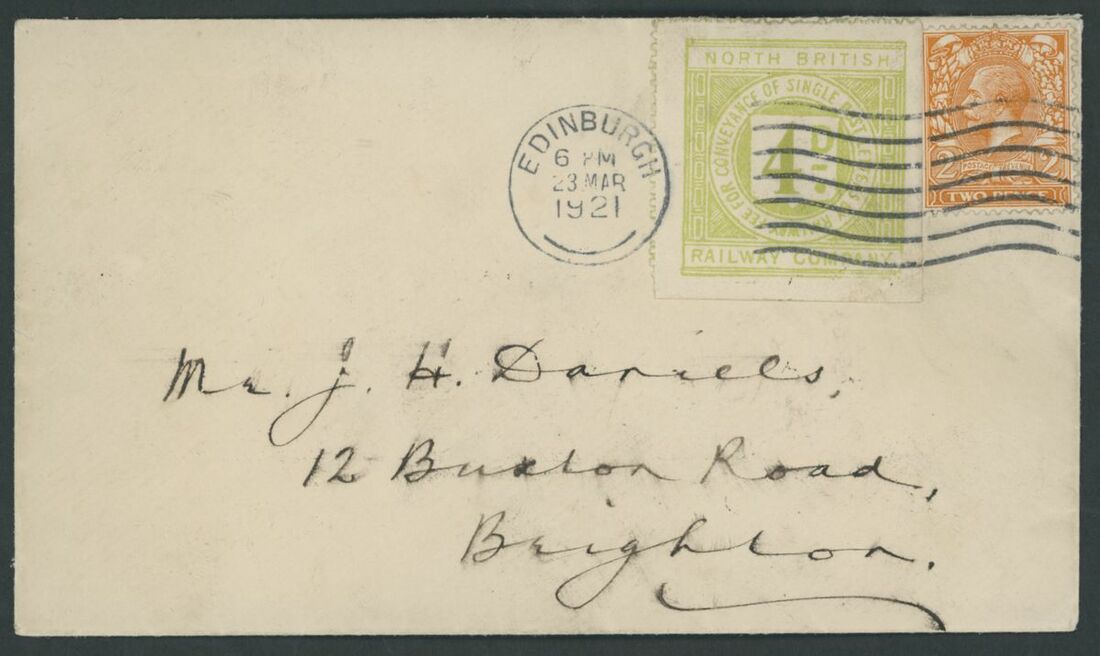 NORTH BRITISH
FEE FOR CONVEYANCE OF SINGLE POST LETTERS BY RAILWAY
4D.
RAILWAY COMPANY
2 POSTAGE REVENUE 2
TWO PENCE
EDINBURGH
6 PM
23 MAR
1921
Mr. J. H. Daniels,
12 Buxton Road,
Brighton.